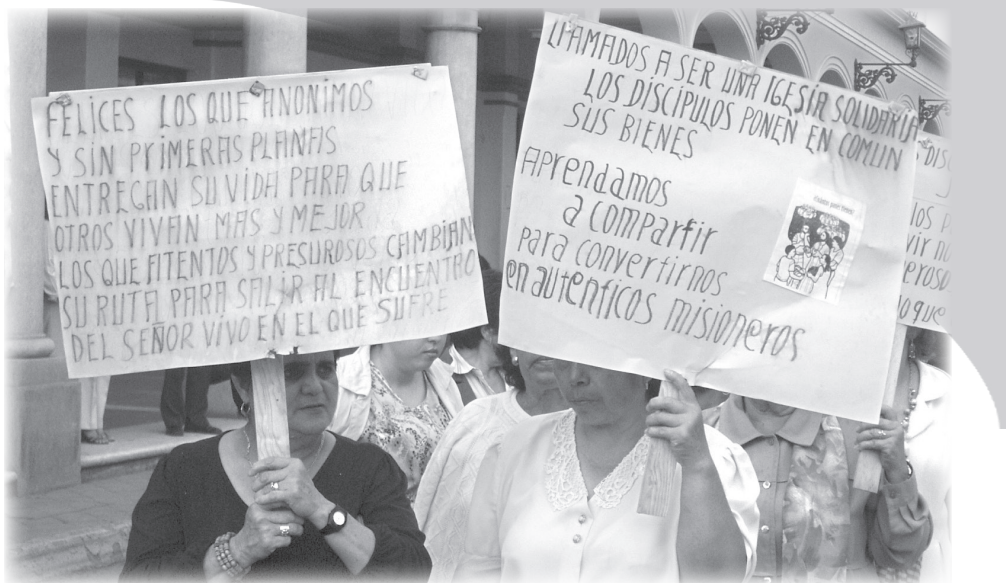 FELICES LOS QUE ANONIMOS
Y SIN PRIMERAS PLANAS
ENTREGAN SU VIDA PARA QUE
OTROS VIVAN MAS Y MEJOR
LOS QUE ATENTOS Y PRESUROSOS CAMBIAN
SU RUTA PARA SALIR AL ENCUENTRO
DEL SEÑOR VIVO EN EL QUE SUFRE
LLAMADOS A SER UNA IGESIA SOLIDARIA
LOS DISCIPULOS PONEN EN COMUN
SUS BIENES
APrendamos
a compartir
para convertirnos
en autenticos misioneros